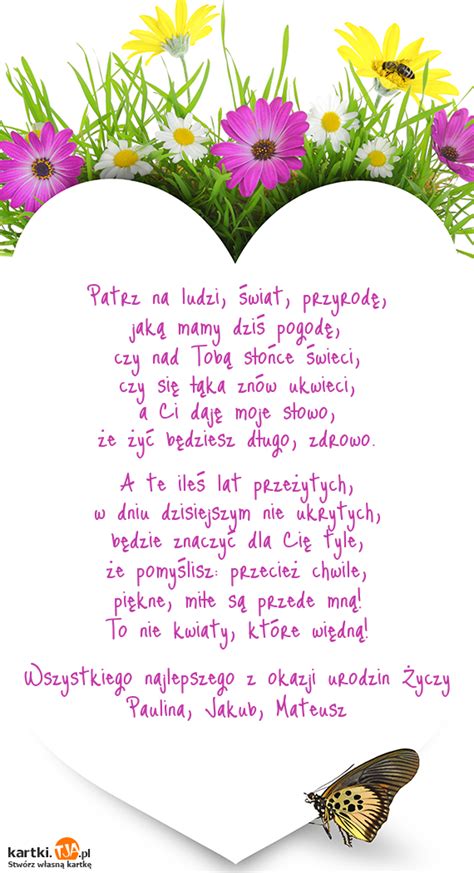 Patrz na ludzi, świat, przyrodę,
jaką mamy dziś pogodę,
czy nad Tobą słońce świeci,
czy się łąka znów ukwieci,
a Ci daję moje słowo,
że żyć będziesz długo, zdrowo.
A te ileś lat przeżytych,
w dniu dzisiejszym nie ukrytych,
będzie znaczyć dla Cię tyle,
że pomyślisz: przecież chwile,
piękne, miłe są przede mną!
To nie kwiaty, które więdną!
Wszystkiego najlepszego z okazji urodzin Życzy
Paulina, Jakub, Mateusz
kartki.TJA.pl
Stwórz własną kartkę